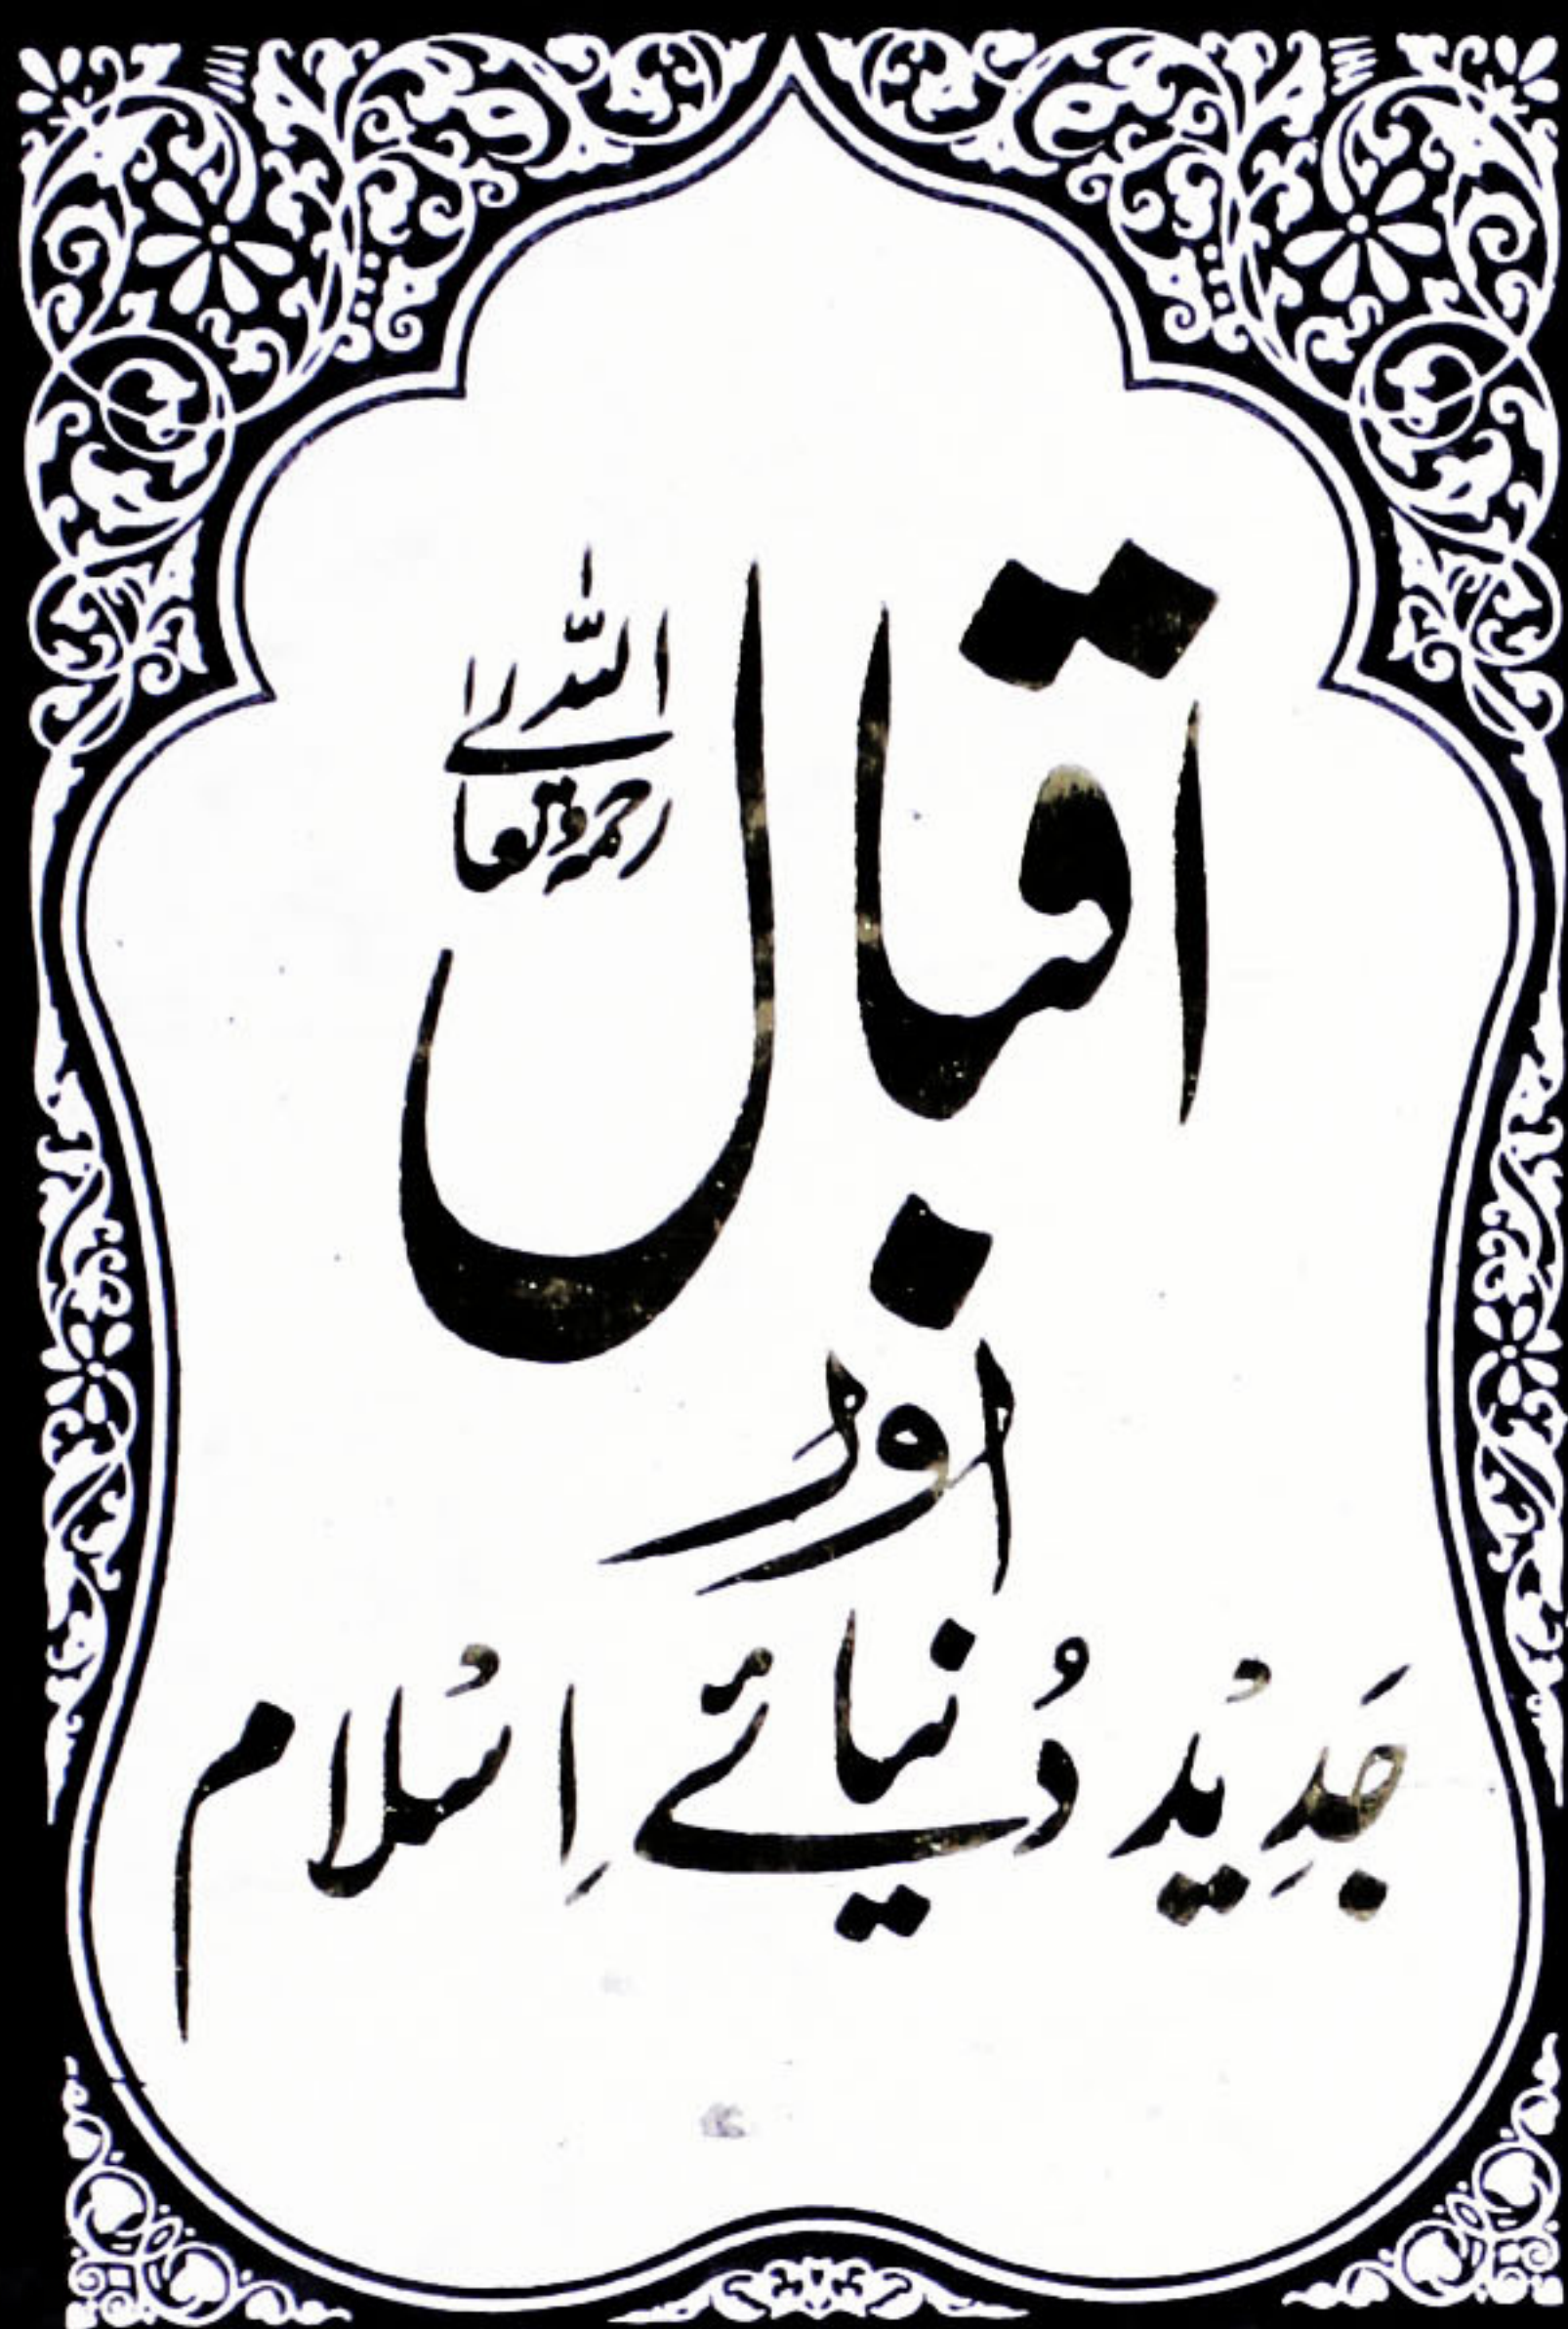 اقبال رحمۃ اللہ تعالےٰ
اَوْر
جَدِیْد دُنیائے اِسْلام